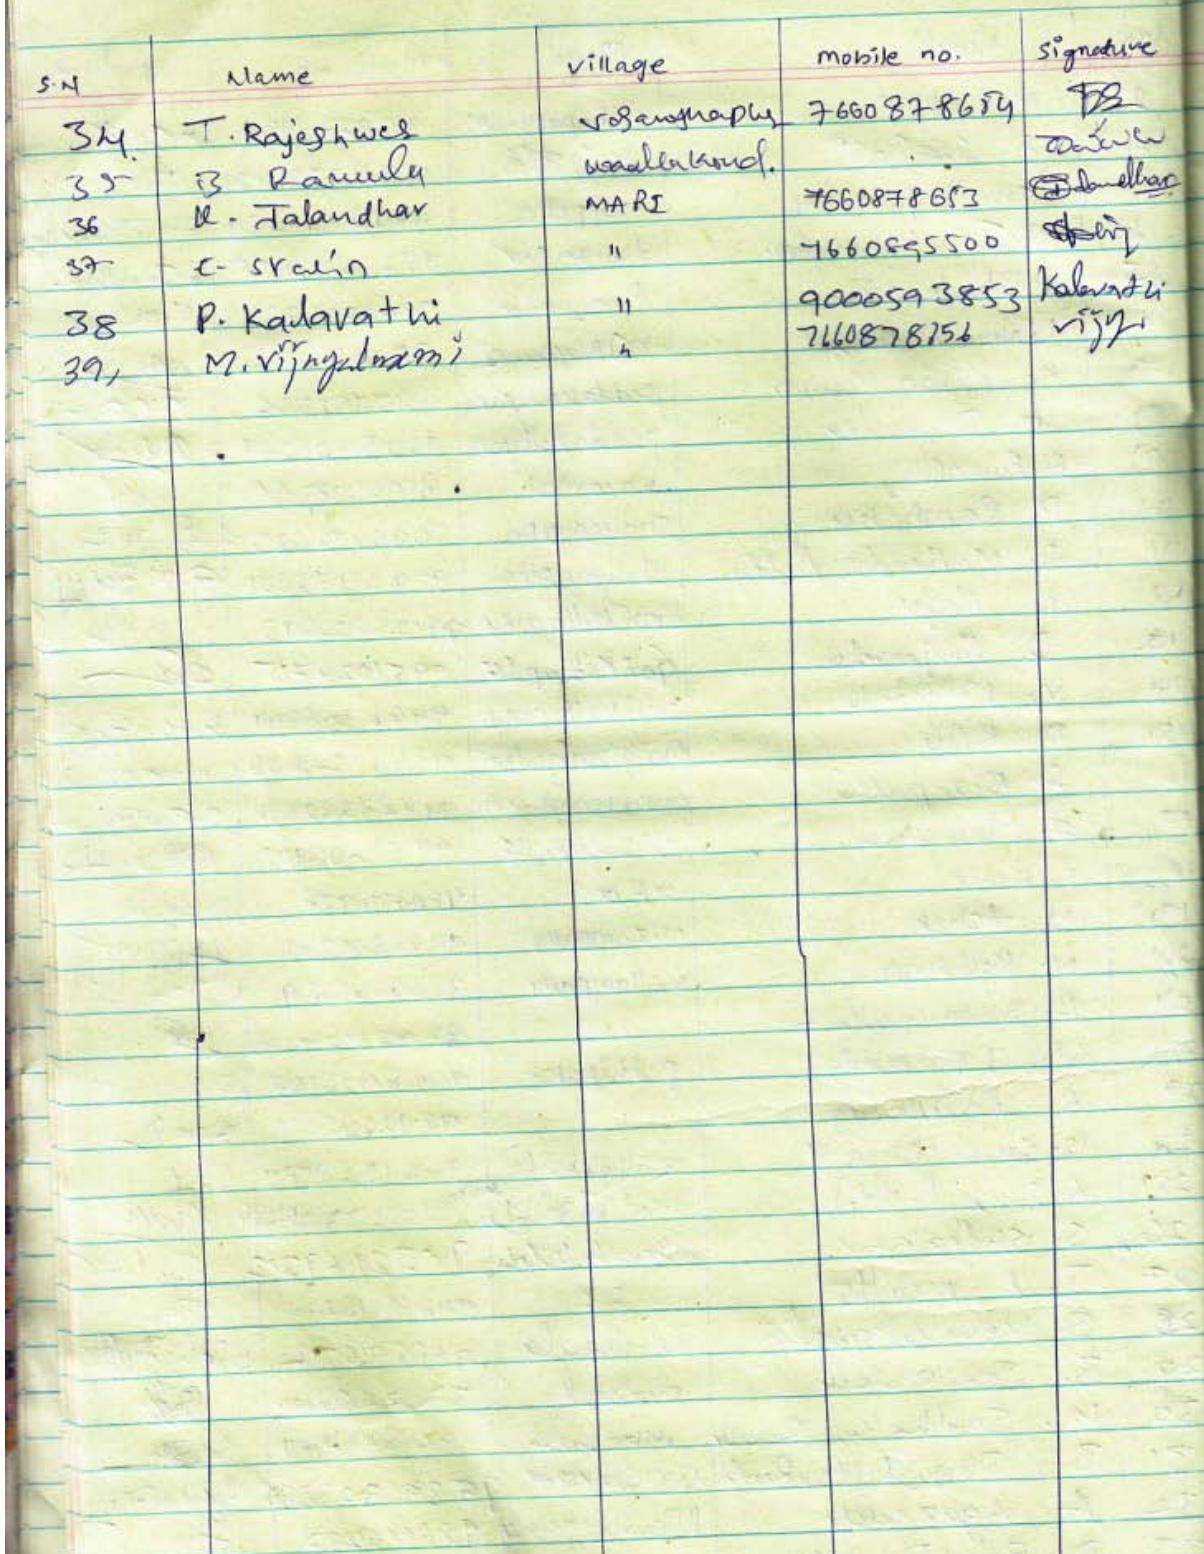 S.N Name village mobile no. signature
34. T. Rajeshwes 7660878654
35 B Ramulu
36 K. Jalandhar MARI 7660878653
37 C- Stalin " 7660895500
38 P. Kalavathi " 9000593853 Kalavathi
39, M. Vijayalaxmi " 7660878756 vijy